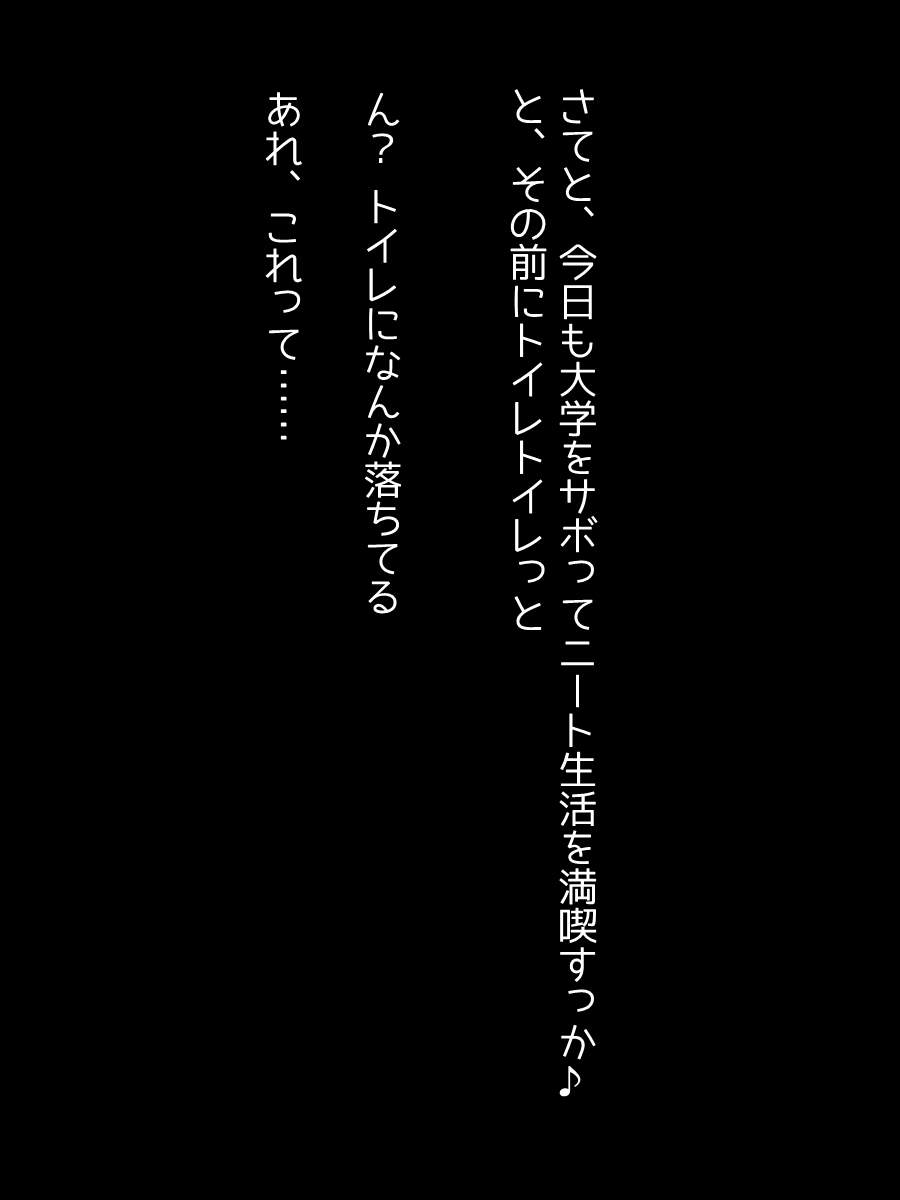 さてと、今日も大学をサボってニート生活を満喫すっか♪
と、その前にトイレトイレっと
ん？ トイレになんか落ちてる
あれ、これって……